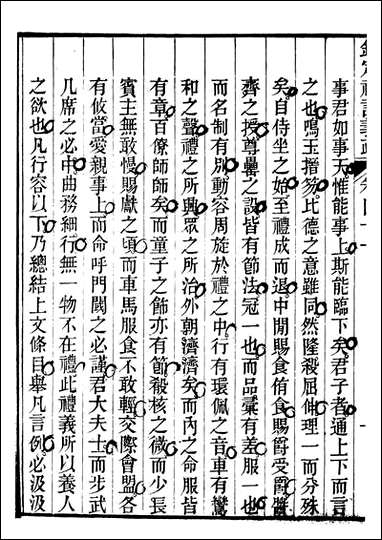 欽定禮記義疏 卷四十一
事君如事天惟能事上斯能臨下矣君子者通上下而言
之也鳴玉搢笏比德之意雖同然隆殺屈伸理一而分殊
矣自侍坐之始至禮成而退中閒賜食侑食賜爵受爵醬
齊之授尊罍之設皆有節法冠一也而品彚有差服一也
而名制有別動容周旋於禮之中行有環佩之音車有鸞
和之聲禮之所興眾之所治外朝濟濟矣而内之命服皆
有章百僚師師矣而童子之飾亦有節殽核之微而少長
賓主無敢慢賜獻之頃而車馬服食不敢輕交際會盟各
有攸當愛親事上而命呼門闑之必謹君大夫士而步武
几席之必中曲務細行無一物不在禮此禮義所以養人
之欲也凡行容以下乃總結上文條目舉凡言例必汲汲